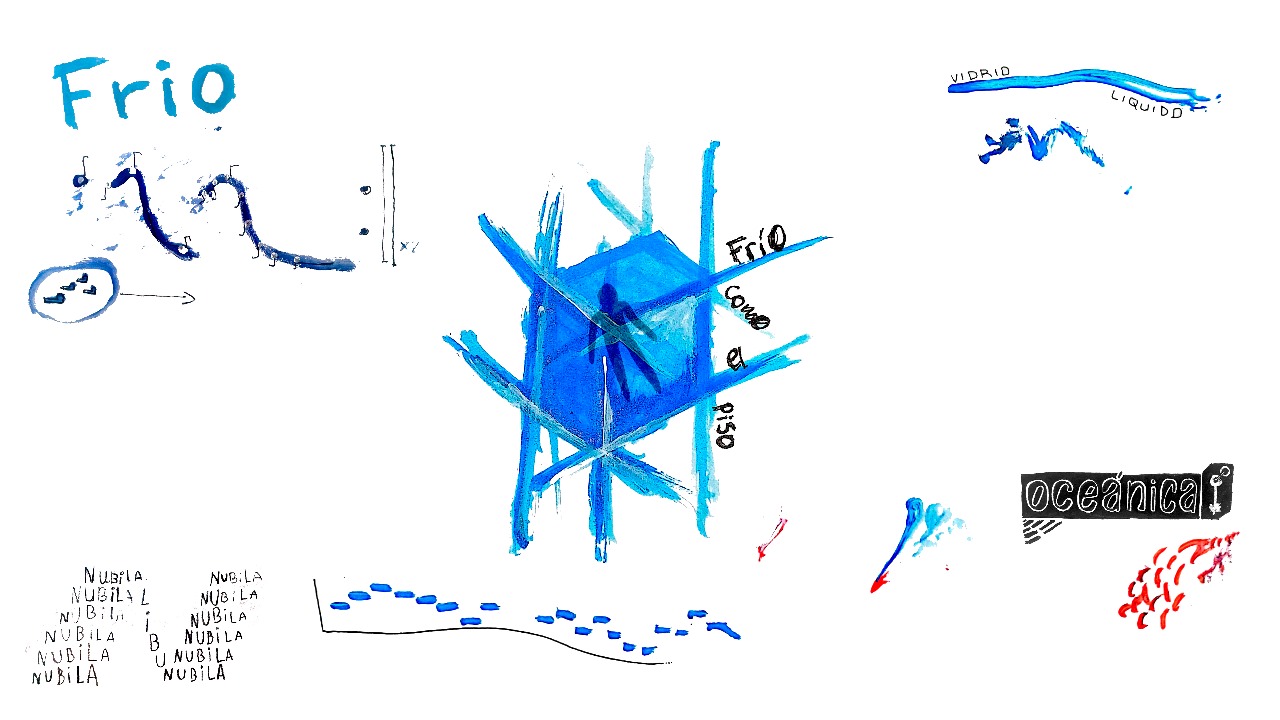 Frio
VIDRIO
LIQUIDO
FRÍO
como
el
piso
oceánica
NUBILA
NUBILA
NUBILA
NUBILA
NUBILA
NUBILA
L
i
B
U
NUBILA
NUBILA
NUBILA
NUBILA
NUBILA
NUBILA